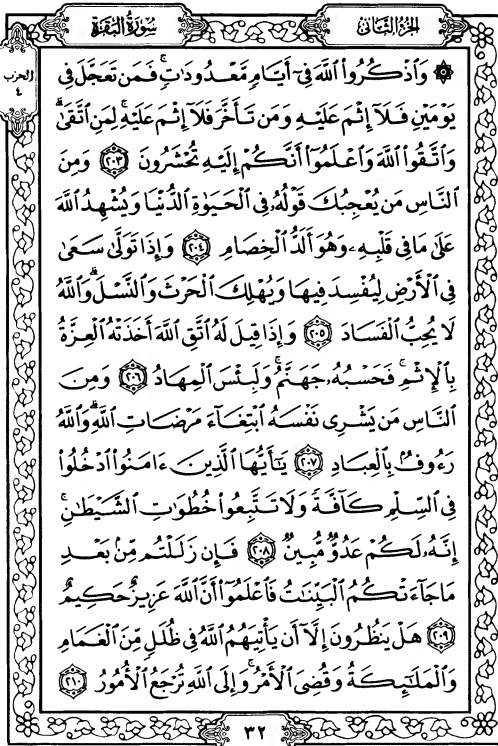 الجزء الثاني
سورة البقرة
الحزب
٤
۞ وَٱذۡكُرُواْ ٱللَّهَ فِيٓ أَيَّامٖ مَّعۡدُودَٰتٖۚ فَمَن تَعَجَّلَ فِي
يَوۡمَيۡنِ فَلَآ إِثۡمَ عَلَيۡهِ وَمَن تَأَخَّرَ فَلَآ إِثۡمَ عَلَيۡهِۚ لِمَنِ ٱتَّقَىٰۗ
وَٱتَّقُواْ ٱللَّهَ وَٱعۡلَمُوٓاْ أَنَّكُمۡ إِلَيۡهِ تُحۡشَرُونَ ٢٠٣ وَمِنَ
ٱلنَّاسِ مَن يُعۡجِبُكَ قَوۡلُهُۥ فِي ٱلۡحَيَوٰةِ ٱلدُّنۡيَا وَيُشۡهِدُ ٱللَّهَ
عَلَىٰ مَا فِي قَلۡبِهِۦ وَهُوَ أَلَدُّ ٱلۡخِصَامِ ٢٠٤ وَإِذَا تَوَلَّىٰ سَعَىٰ
فِي ٱلۡأَرۡضِ لِيُفۡسِدَ فِيهَا وَيُهۡلِكَ ٱلۡحَرۡثَ وَٱلنَّسۡلَۚ وَٱللَّهُ
لَا يُحِبُّ ٱلۡفَسَادَ ٢٠٥ وَإِذَا قِيلَ لَهُ ٱتَّقِ ٱللَّهَ أَخَذَتۡهُ ٱلۡعِزَّةُ
بِٱلۡإِثۡمِۚ فَحَسۡبُهُۥ جَهَنَّمُۖ وَلَبِئۡسَ ٱلۡمِهَادُ ٢٠٦ وَمِنَ
ٱلنَّاسِ مَن يَشۡرِي نَفۡسَهُ ٱبۡتِغَآءَ مَرۡضَاتِ ٱللَّهِۚ وَٱللَّهُ
رَءُوفُۢ بِٱلۡعِبَادِ ٢٠٧ يَٰٓأَيُّهَا ٱلَّذِينَ ءَامَنُواْ ٱدۡخُلُواْ
فِي ٱلسِّلۡمِ كَآفَّةٗ وَلَا تَتَّبِعُواْ خُطُوَٰتِ ٱلشَّيۡطَٰنِۚ
إِنَّهُۥ لَكُمۡ عَدُوّٞ مُّبِينٞ ٢٠٨ فَإِن زَلَلۡتُم مِّنۢ بَعۡدِ
مَا جَآءَتۡكُمُ ٱلۡبَيِّنَٰتُ فَٱعۡلَمُوٓاْ أَنَّ ٱللَّهَ عَزِيزٌ حَكِيمٌ
٢٠٩ هَلۡ يَنظُرُونَ إِلَّآ أَن يَأۡتِيَهُمُ ٱللَّهُ فِي ظُلَلٖ مِّنَ ٱلۡغَمَامِ
وَٱلۡمَلَٰٓئِكَةُ وَقُضِيَ ٱلۡأَمۡرُۚ وَإِلَى ٱللَّهِ تُرۡجَعُ ٱلۡأُمُورُ ٢١٠
٣٢